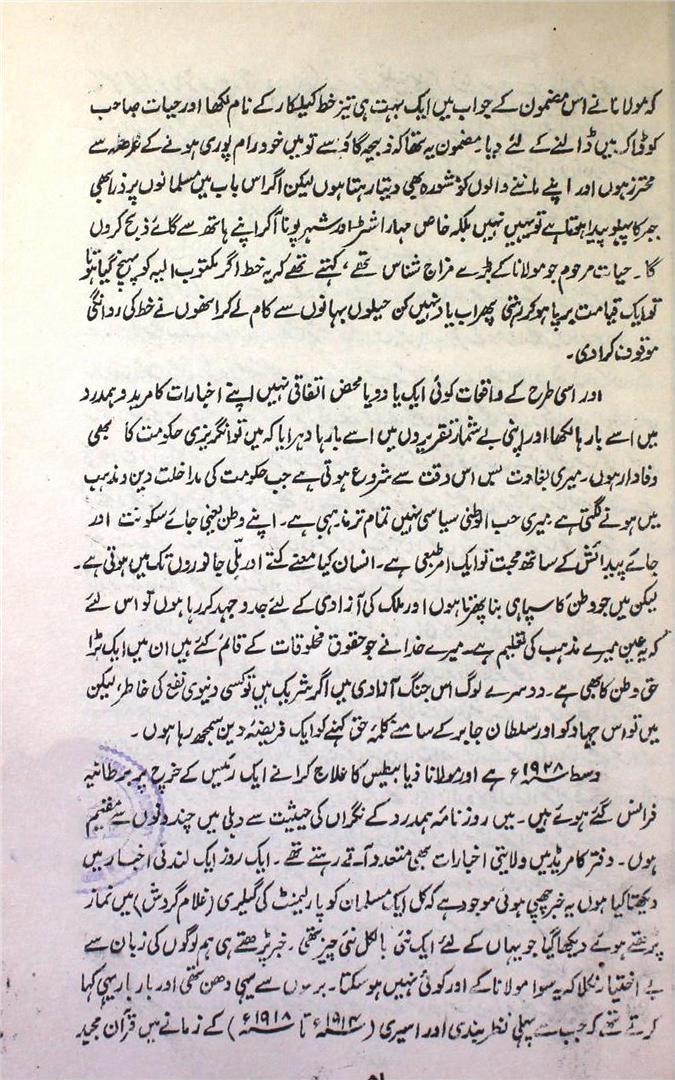 کہ مولانا نے اس مضمون کے جواب میں ایک بہت ہی تیز خط کیلکار کے نام لکھا اور حیات صاحب
کو ڈاک میں ڈالنے کے لئے دیا۔ مضمون یہ تھا کہ ذبیحہ گاؤ سے تو میں خود رام پوری ہونے کے عرصہ سے
محترز ہوں اور اپنے ماننے والوں کو مشورہ بھی دیتا رہتا ہوں لیکن اگر اس باب میں مسلمانوں پر ذرا بھی
جبر کا پہلو پیدا ہوتا ہے تو یہیں نہیں بلکہ خاص مہاراشٹر اور شہر پونا آکر اپنے ہاتھ سے گائے ذبح کروں
گا۔ حیات مرحوم جو مولانا کے بڑے مزاج شناس تھے، کہتے تھے کہ یہ خط اگر مکتوب الیہ کو پہنچ گیا ہوتا
تو ایک قیامت برپا ہو کر رہتی پھر اب یاد نہیں کن حیلوں بہانوں سے کام لے کر انھوں نے خط کی روانگی
موقوف کرادی۔
اور اسی طرح کے واقعات کوئی ایک یا دو یا محض اتفاقی نہیں اپنے اخبارات کامریڈ و ہمدرد
میں اسے بارہا لکھا اور اپنی بے شمار تقریروں میں اسے بارہا دہرایا کہ میں تو انگریزی حکومت کا بھی
وفادار ہوں۔ میری بغاوت بس اس وقت سے شروع ہوتی ہے جب حکومت کی مداخلت دین و مذہب
میں ہونے لگتی ہے میری حب الوطنی سیاسی نہیں تمام تر مذہبی ہے۔ اپنے وطن یعنی جائے سکونت اور
جائے پیدائش کے ساتھ محبت تو ایک امر طبعی ہے۔ انسان کیا معنے کتے اور بلی جانوروں تک میں ہوتی ہے۔
لیکن میں جو وطن کا سپاہی بنا پھرتا ہوں اور ملک کی آزادی کے لئے جدوجہد کر رہا ہوں تو اس لئے
کہ یہ عین میرے مذہب کی تعلیم ہے۔ میرے خدا نے جو حقوق مخلوقات کے قائم کئے ہیں ان میں ایک بڑا
حق وطن کا بھی ہے۔ دوسرے لوگ اس جنگ آزادی میں اگر شریک ہیں تو کسی دنیوی نفع کی خاطر، لیکن
میں تو اس جہاد کو اور سلطان جابر کے سامنے کلمۂ حق کہنے کو ایک فریضۂ دین سمجھ رہا ہوں۔
وسط ۱۹۲۸ء ہے اور مولانا ذیابیطس کا علاج کرانے ایک رئیس کے خرچ پر برطانیہ
فرانس گئے ہوئے ہیں۔ میں روزنامہ ہمدرد کے نگراں کی حیثیت سے دہلی میں چند دنوں سے مقیم
ہوں۔ دفتر کامریڈ میں ولایتی اخبارات بھی متعدد آتے رہتے تھے۔ ایک روز ایک لندنی اخبار میں
دیکھتا کیا ہوں یہ خبر چھپی ہوئی موجود ہے کہ کل ایک مسلمان کو پارلیمنٹ کی گیلیری (غلام گردش) میں نماز
پڑھتے ہوئے دیکھا گیا جو یہاں کے لئے ایک نئی بالکل نئی چیز تھی۔ خبر پڑھتے ہی ہم لوگوں کی زبان سے
بے اختیار نکلا کہ یہ سوا مولانا کے اور کوئی نہیں ہو سکتا۔ برسوں سے یہی دھن تھی اور بار بار یہی کہا
کرتے تھے کہ جب سے پہلی نظر بندی اور اسیری (۱۹۱۴ء تا ۱۹۱۸ء) کے زمانے میں قرآن مجید